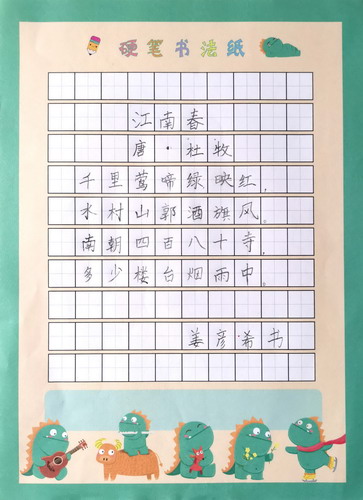 硬笔书法纸
江南春
唐·杜牧
千里莺啼绿映红,
水村山郭酒旗风。
南朝四百八十寺,
多少楼台烟雨中。
姜彦希书